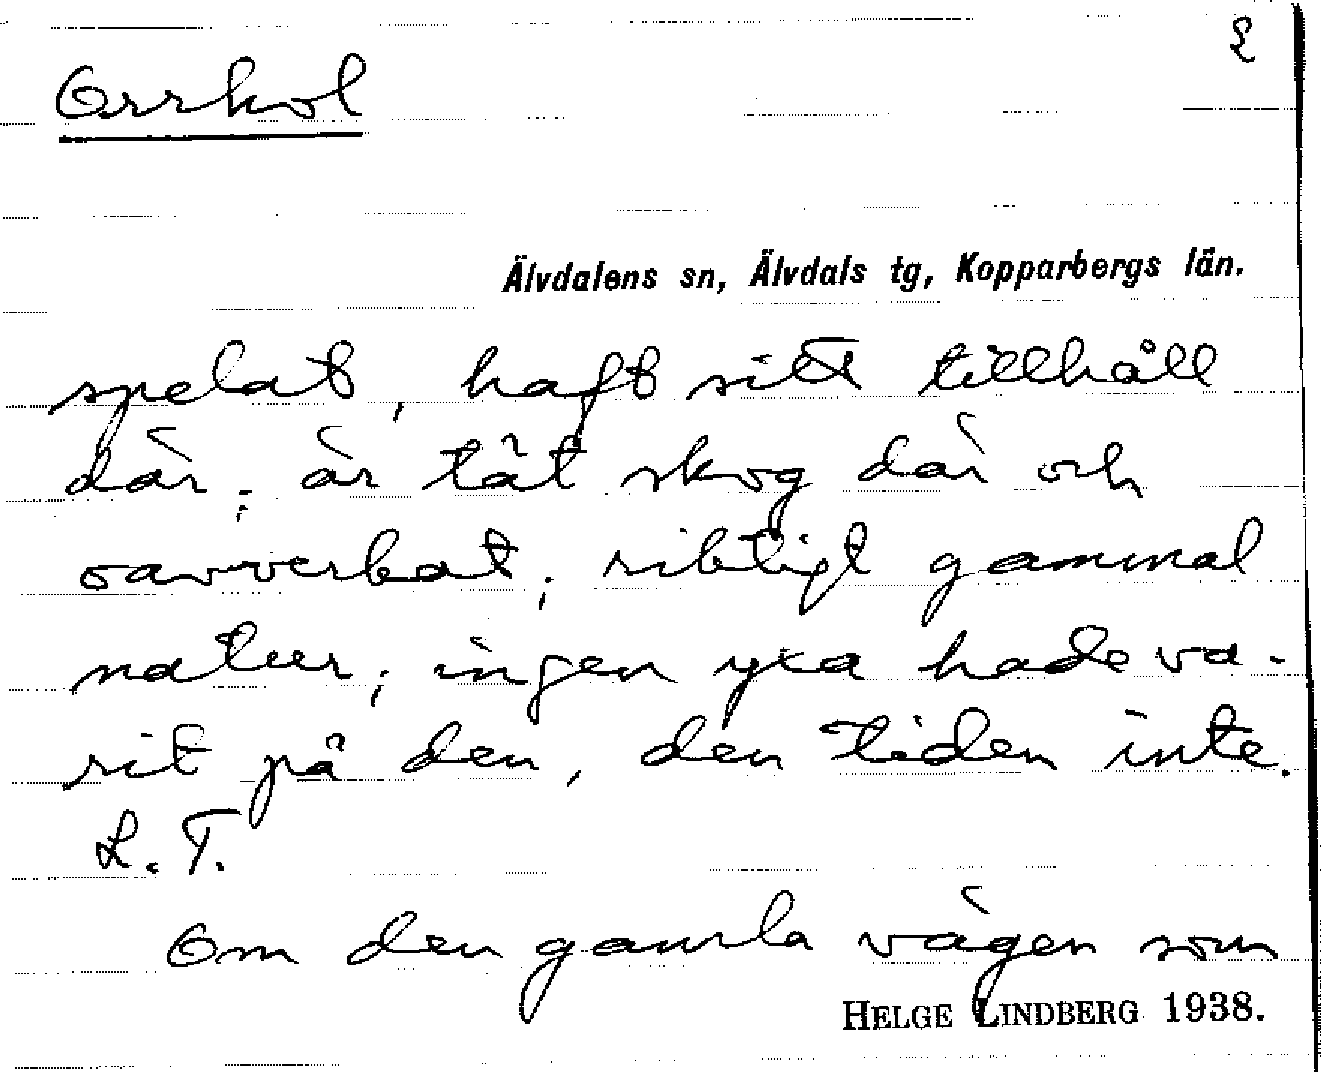 2
Orrhol
Älvdalens sn, Älvdals tg, Kopparbergs län.
spelat, haft sitt tillhåll
där; är tät skog där och
oavverkat; riktigt gammal
natur; ingen yxa hade va-
rit på den, den tiden inte.
L. T.
Om den gamla vägen som
HELGE LINDBERG 1938.